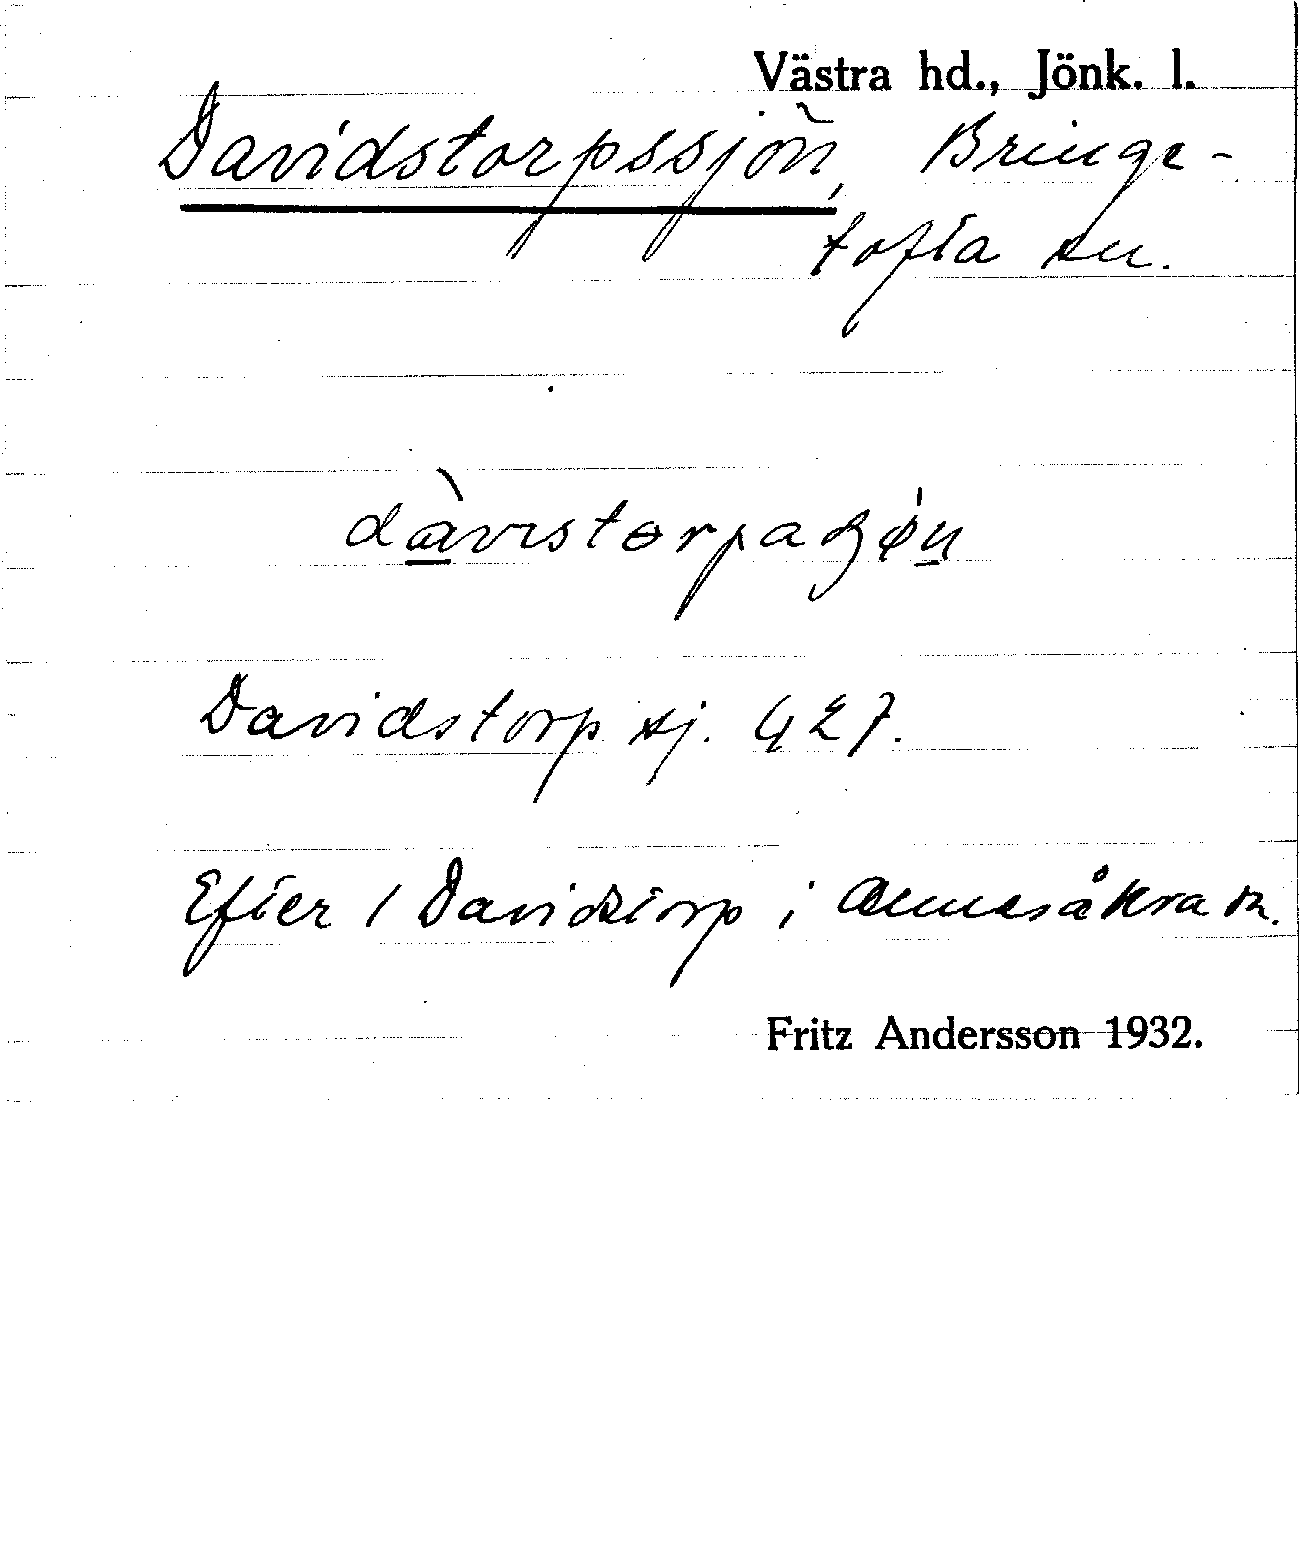 Västra hd., Jönk. l.
Davidstorpssjön, Bringe-
tofta sn.
Davidstorp sj. G 27.
Efter 1 Davidstorp i Almesåkra sn.
Fritz Andersson 1932.